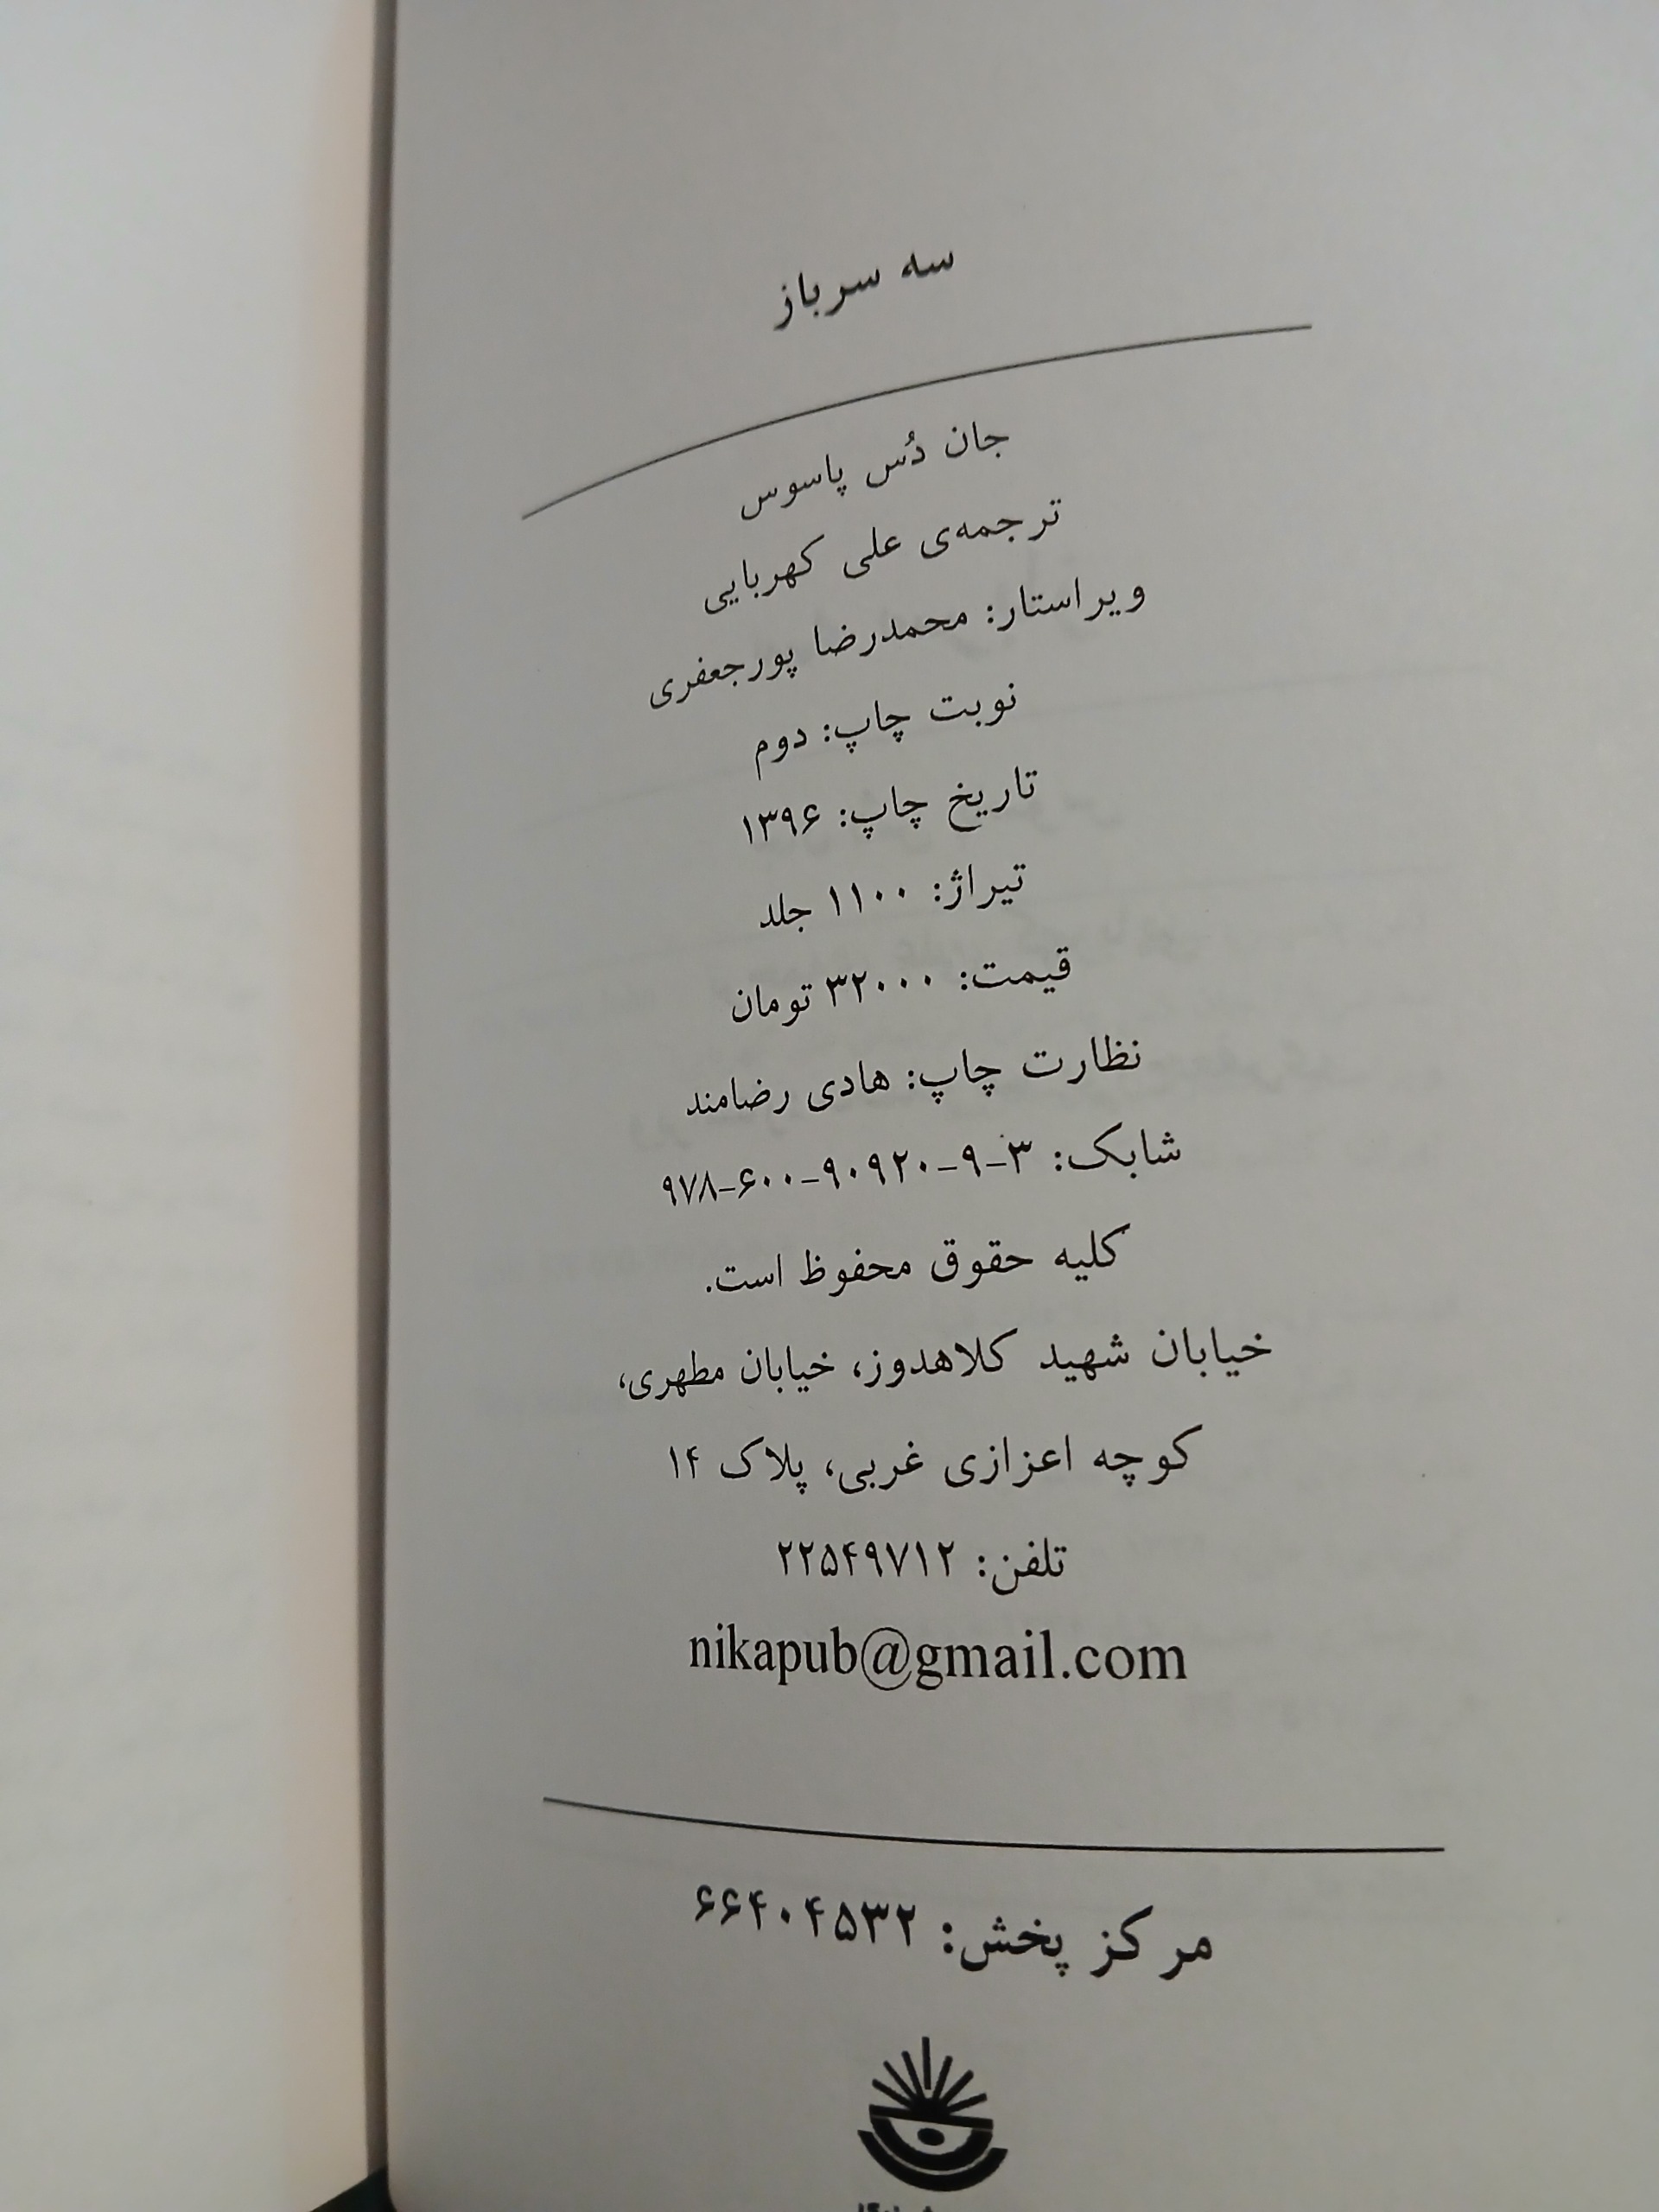 سه سرباز
جان دُس پاسوس
ترجمه‌ی علی کهربایی
ویراستار: محمدرضا پورجعفری
نوبت چاپ: دوم
تاریخ چاپ: ۱۳۹۶
تیراژ: ۱۱۰۰ جلد
قیمت: ۳۲۰۰۰ تومان
نظارت چاپ: هادی رضامند
شابک: ۳-۹-۹۰۹۲۰-۶۰۰-۹۷۸
کلیه حقوق محفوظ است.
خیابان شهید کلاهدوز، خیابان مطهری،
کوچه اعزازی غربی، پلاک ۱۴
تلفن: ۲۲۵۴۹۷۱۲
nikapub@gmail.com
مرکز پخش: ۶۶۴۰۴۵۳۲